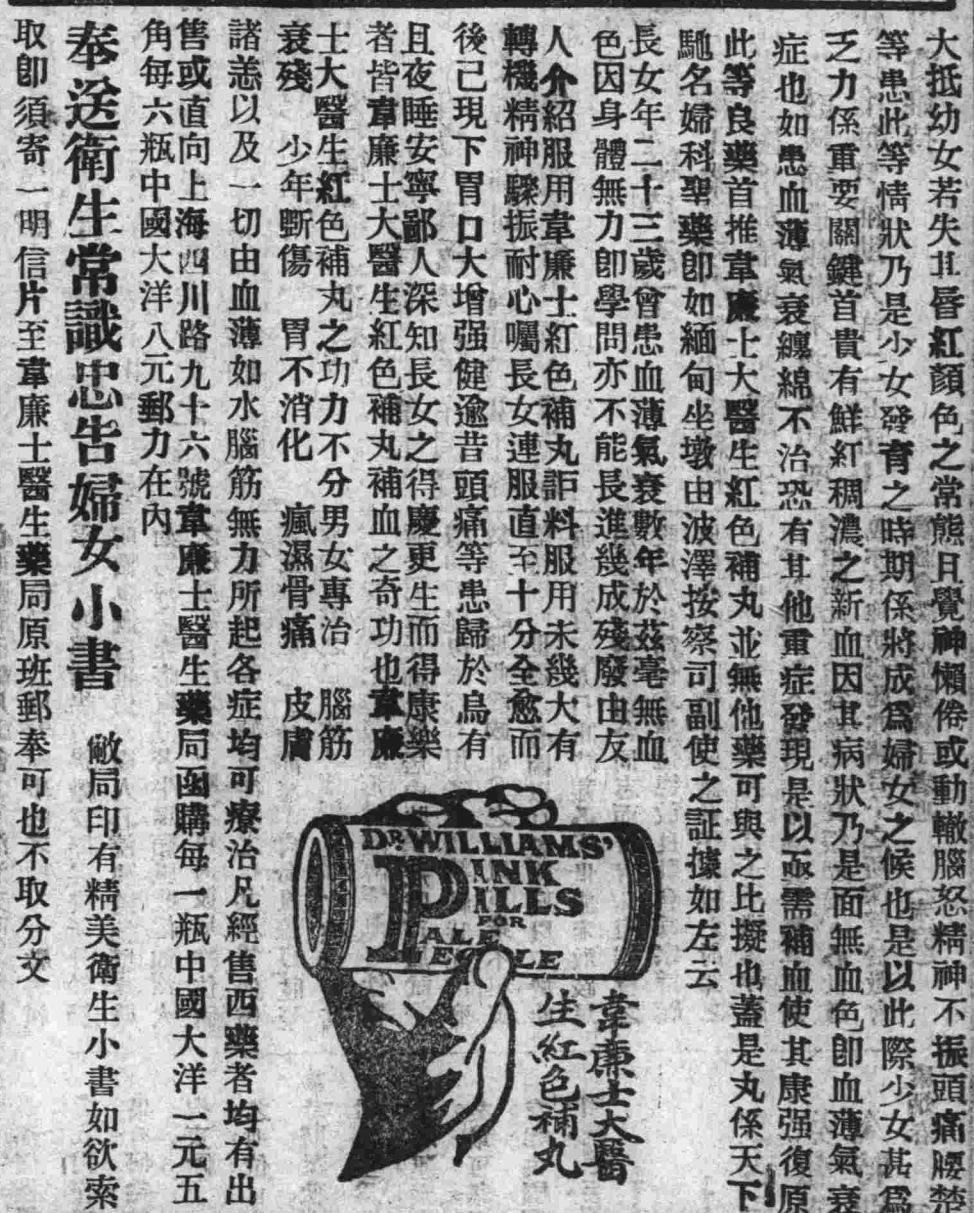 大抵幼女若失其唇紅顏色之常態日覺神懶倦或動輒腦怒精神不振頭痛腰楚
等患此等情狀乃是少女發育之時期係將成爲婦女之候也是以此際少女甚爲
乏力係重要關鍵首貴有鮮紅稠濃之新血因其病狀乃是面無血色卽血薄氣衰
症也如患血薄氣衰纏綿不治恐有其他重症發現是以亟需補血使其康强復原
此等良藥首推韋廉士大醫生紅色補丸並無他藥可與之比擬也蓋是丸係天下
馳名婦科聖藥卽如緬甸坐墩由波澤按察司副使之証據如左云
長女年二十三歲曾患血薄氣衰數年於茲毫無血
色因身體無力卽學問亦不能長進幾成殘廢由友
人介紹服用韋廉士紅色補丸詎料服用未幾大有
轉機精神驟振耐心囑長女連服直至十分全愈而
後已現下胃口大增强健逾昔頭痛等患歸於烏有
且夜睡安寧鄙人深知長女之得慶更生而得康樂
者皆韋廉士大醫生紅色補丸補血之奇功也韋廉
士大醫生紅色補丸之功力不分男女專治 腦筋
衰殘 少年斲傷 胃不消化 瘋濕骨痛 皮膚
諸恙以及一切由血薄如水腦筋無力所起各症均可療治凡經售西藥者均有出
售或直向上海四川路九十六號韋廉士醫生藥局函購每一瓶中國大洋一元五
角每六瓶中國大洋八元郵力在內
奉送衛生常識忠告婦女小書 敝局印有精美衛生小書如欲索
取卽須寄一明信片至韋廉士醫生藥局原班郵奉可也不取分文
DR WILLIAMS'
PINK
PILLS
FOR
PALE
PEOPLE
韋廉士大醫
生紅色補丸